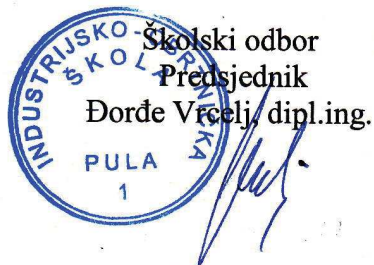 Školski odbor
Predsjednik
Đorđe Vrcelj, dipl.ing.
INDUSTRIJSKO-OBRTNIČKA
ŠKOLA
PULA
1